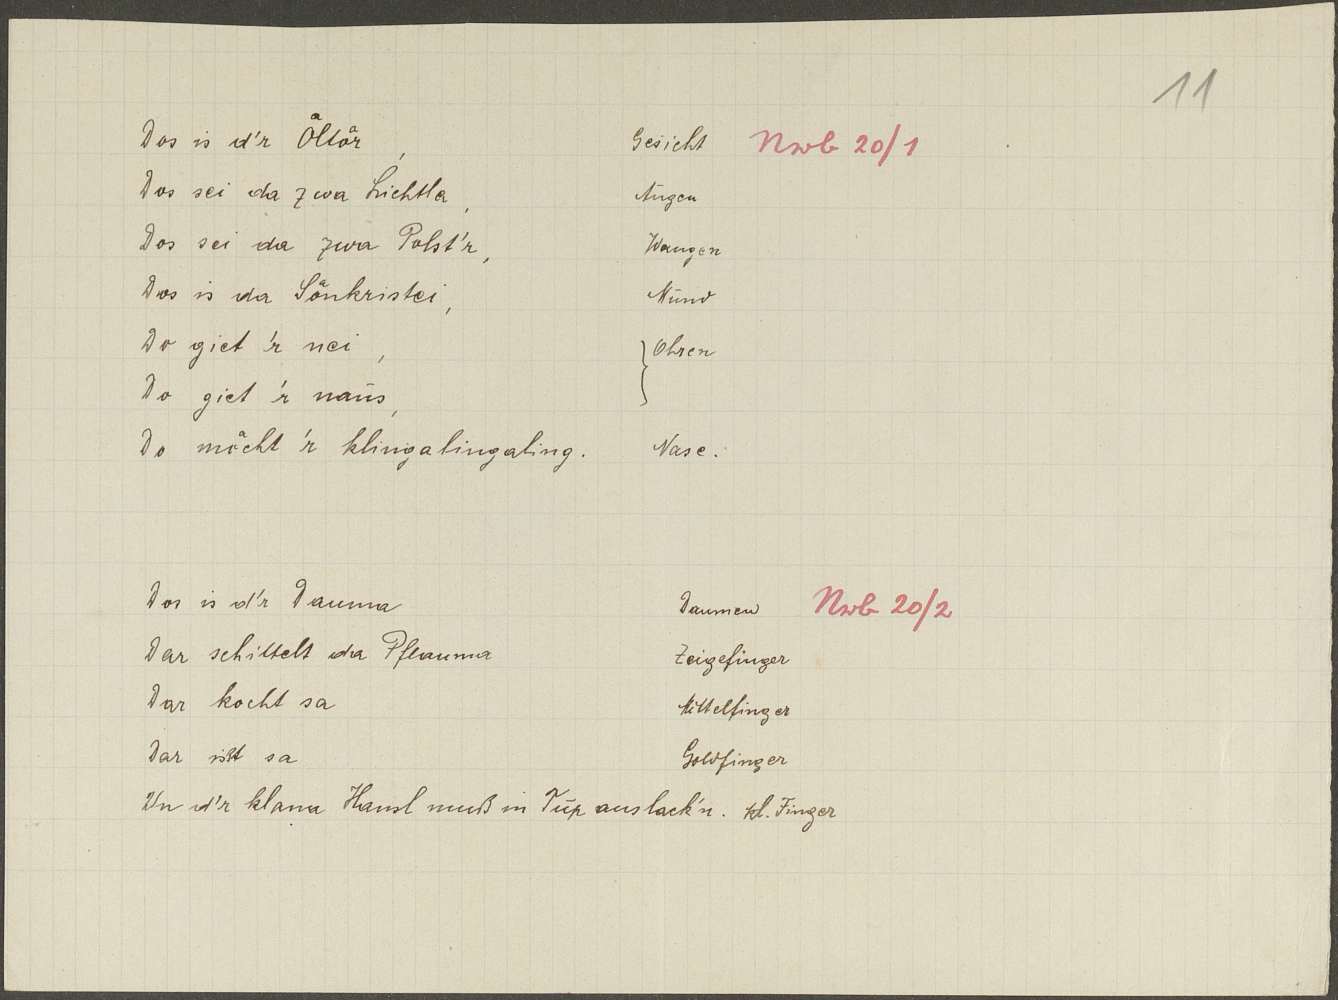 11
Dos is d'r Åltår, Gesicht Nwb 20/1
Dos sei da zwa Lichtla, Augen
Dos sei da zwa Polst'r, Wangen
Dos is da Sånkristei, Mund
Do giet 'r nei, Ohren
Do giet 'r naus,
Do måcht 'r klingalingaling. Nase.
Dos is d'r Dauma Daumen Nwb 20/2
Dar schittelt da Pflauma Zeigefinger
Dar kocht sa Mittelfinger
Dar ißt sa Goldfinger
Un d'r klana Hansl muß in Tup auslack'n. kl. Finger